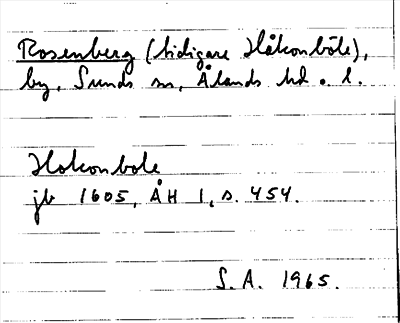 Rosenberg (tidigare Håkonböle),
by, Sunds sn, Ålands hd o. l.
Hokonbole
jb 1605, ÅH 1, s. 454.
S. A. 1965.